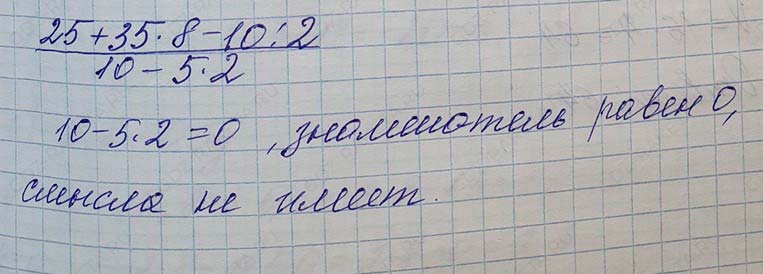 25+35·8-10:2
10-5·2
10-5·2=0, знаменатель равен 0,
смысла не имеет.